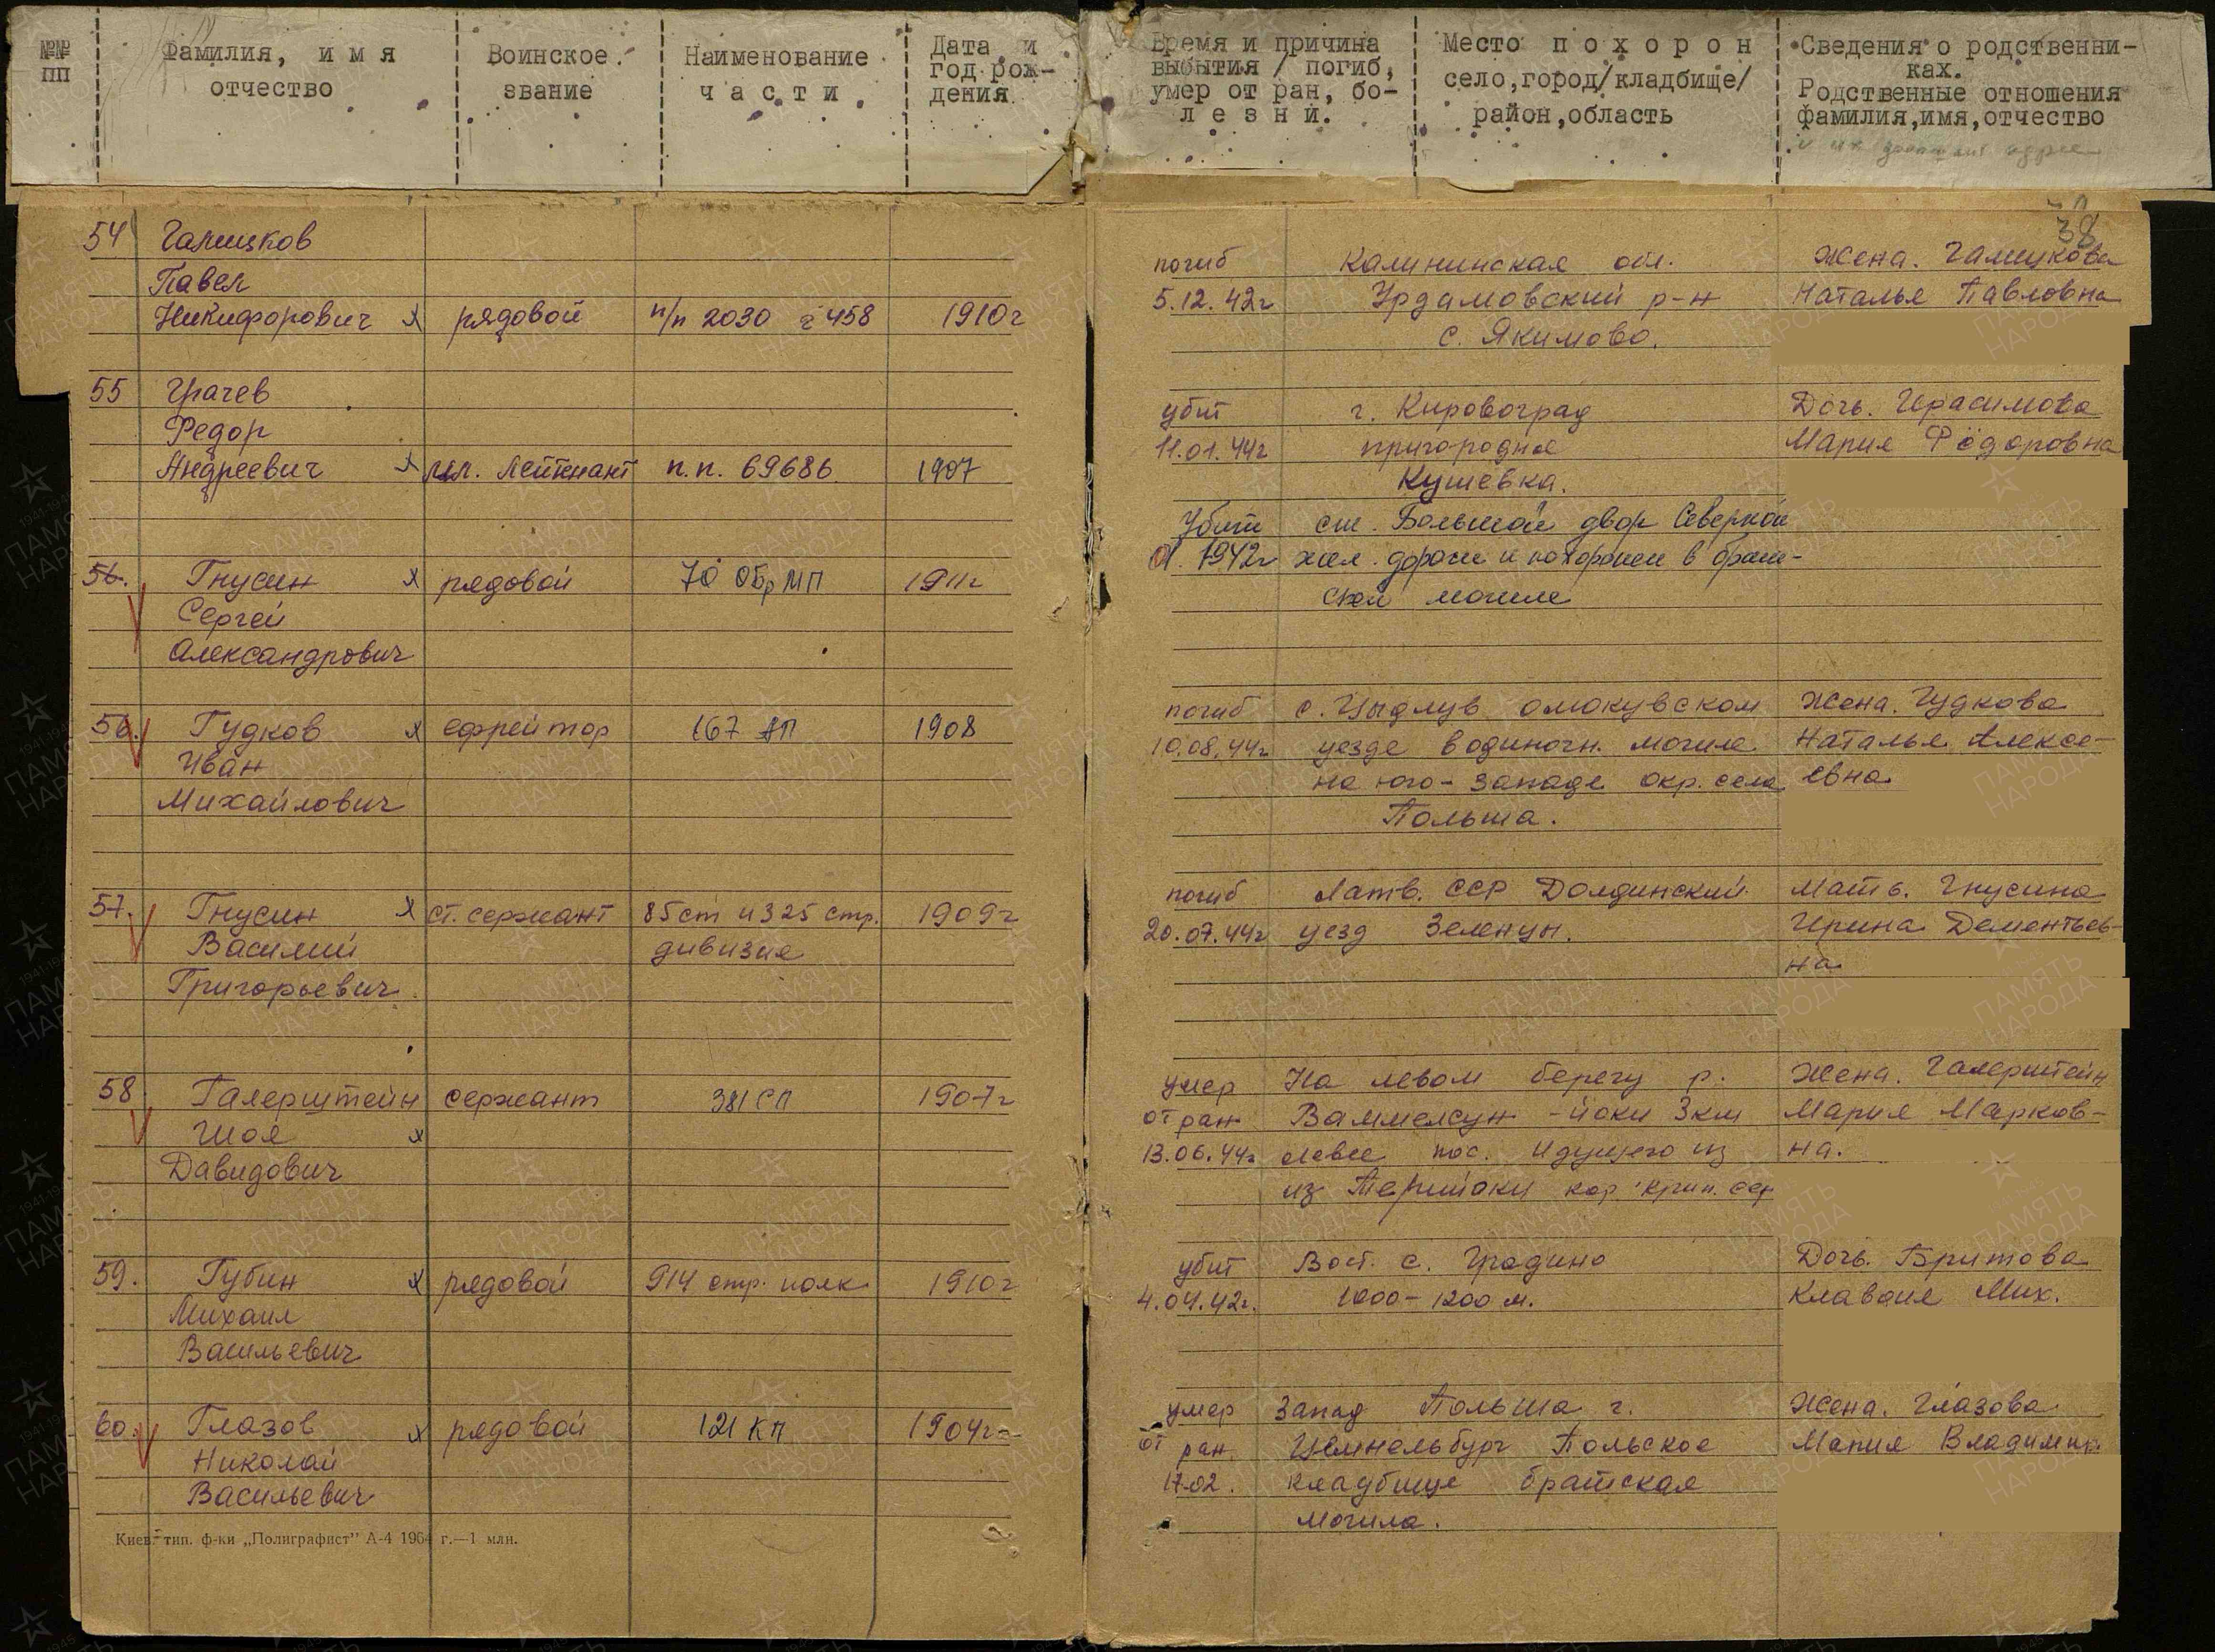 №№ ПП
Фамилия, имя отчество
Воинское звание
Наименование части
Дата и год рождения
Время и причина выбытия / погиб, умер от ран, болезни.
Место похорон село,город/кладбище/ район,область
Сведения о родственниках. Родственные отношения фамилия,имя,отчество
38
54 Галицков
Павел
Никифорович х рядовой п/п 2030 458 1910г
погиб Калининская обл. Жена. Галицкова
5.12.42г Урдамовский р-н Наталье Павловна
с. Якимово.
55 Грачев
Федор
Андреевич х мл. лейтенант п.п. 69686 1907
убит г. Кировоград Дочь. Герасимова
11.01.44г пригородное Мария Фёдоровна
Кушевка.
56. Гнусин х рядовой 70 ОБрМП 1911г
Сергей
Александрович
Убит ст. Большой двор Северной
01.1942г жел. дороги и похоронен в брат-
ской могиле
56. Гудков х ефрейтор 167 АП 1908
Иван
Михайлович
погиб с. Цыдлув омокувском Жена. Гудкова
10.08.44г уезде в одиночн. могиле Наталья Алексе-
на юго-западе окр. села евна
Польша.
57. Гнусин х ст. сержант 85 сп и 325 стр. 1909г
Василий дивизия
Григорьевич
погиб Латв. ССР Долдинский Мать. Гнусина
20.07.44г уезд Зеленцы. Ирина Дементьев-
на
58. Галерштейн сержант 381 СП 1907г
Шоя х
Давидович
умер На левом берегу р. Жена. Галерштейн
от ран Ваммелсун-йоки 3км Мария Марков-
13.06.44г левее пос. идущего из на.
из Терийоки
59. Губин х рядовой 914 стр. полк 1910г
Михаил
Васильевич
убит Вост. с. Градино Дочь. Бритова
4.04.42г. 1000-1200 м. Клавдия Мих.
60. Глазов х рядовой 121 КП 1904г
Николай
Васильевич
умер Запад Польша г. Жена. Глазова
от ран. Цемпельбург Польское Мария Владимир.
17.02. кладбище братская
могила.
Киев. тип. ф-ки „Полиграфист" А-4 1964 г.—1 млн.